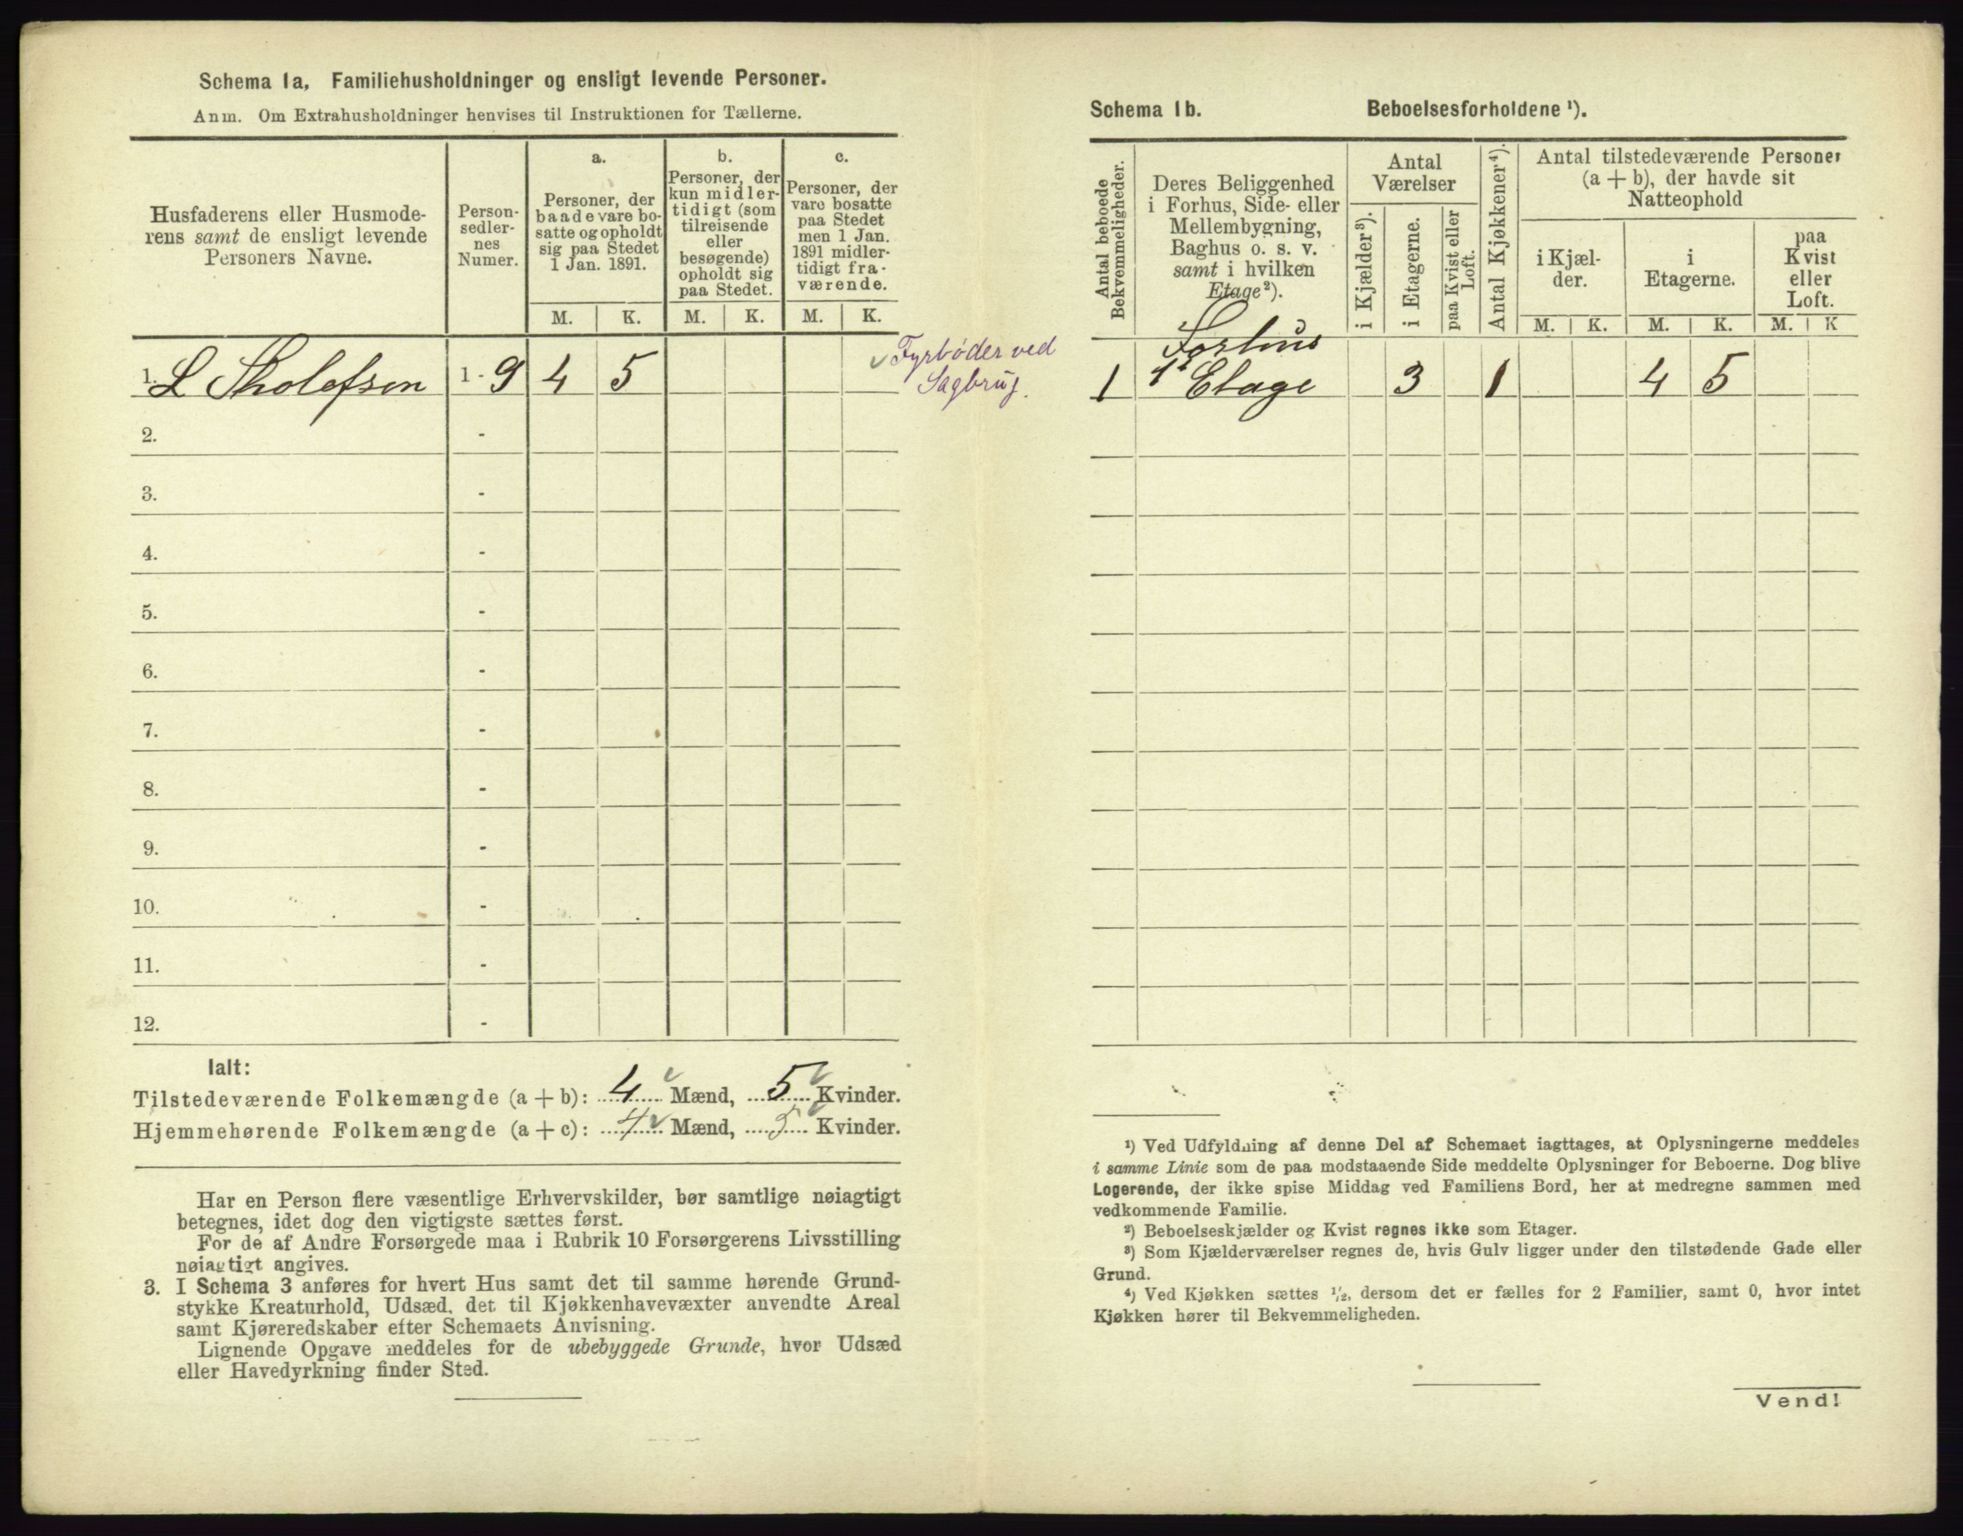 Schema 1a, Familiehusholdninger og ensligt levende Personer.
Anm. Om Extrahusholdninger henvises til Instruktionen for Tællerne.
Husfaderens eller Husmode-
rens samt de ensligt levende
Personers Navne.
Person-
sedler-
nes
Numer.
a.
Personer, der
baade vare bo-
satte og opholdt
sig paa Stedet
1 Jan. 1891.
b.
Personer, der
kun midler-
tidigt (som
tilreisende
eller
besøgende)
opholdt sig
paa Stedet.
c.
Personer, der
vare bosatte
paa Stedet
men 1 Jan.
1891 midler-
tidigt fra-
værende.
M. K. M. K. M. K.
1. L Tholefsen 1 - 9 4 5
Fyrbøder ved
Sagbrug.
2. -
3. -
4. -
5. -
6. -
7. -
8. -
9. -
10. -
11. -
12. -
Ialt:
Tilstedeværende Folkemængde (a + b): 4 Mænd, 5 Kvinder.
Hjemmehørende Folkemængde (a + c): 4 Mænd, 5 Kvinder.
Har en Person flere væsentlige Erhvervskilder, bør samtlige nøiagtigt
betegnes, idet dog den vigtigste sættes først.
For de af Andre Forsørgede maa i Rubrik 10 Forsørgerens Livsstilling
nøiagtigt angives.
3. I Schema 3 anføres for hvert Hus samt det til samme hørende Grund-
stykke Kreaturhold, Udsæd, det til Kjøkkenhavevæxter anvendte Areal
samt Kjøreredskaber efter Schemaets Anvisning.
Lignende Opgave meddeles for de ubebyggede Grunde, hvor Udsæd
eller Havedyrkning finder Sted.
Schema 1b. Beboelsesforholdene ¹).
Antal beboede
Bekvemmeligheder.
Deres Beliggenhed
i Forhus, Side- eller
Mellembygning,
Baghus o. s. v.
samt i hvilken
Etage²).
Antal
Værelser
i Kjælder³).
i Etagerne.
paa Kvist eller
Loft.
Antal Kjøkkener⁴).
Antal tilstedeværende Personer
(a + b), der havde sit
Natteophold
i Kjæl-
der.
i
Etagerne.
paa
Kvist
eller
Loft.
M. K. M. K. M. K
Forhus
1 1ˢᵗ Etage 3 1 4 5
¹) Ved Udfyldning af denne Del af Schemaet iagttages, at Oplysningerne meddeles
i samme Linie som de paa modstaaende Side meddelte Oplysninger for Beboerne. Dog blive
Logerende, der ikke spise Middag ved Familiens Bord, her at medregne sammen med
vedkommende Familie.
²) Beboelseskjælder og Kvist regnes ikke som Etager.
³) Som Kjælderværelser regnes de, hvis Gulv ligger under den tilstødende Gade eller
Grund.
⁴) Ved Kjøkken sættes ½, dersom det er fælles for 2 Familier, samt 0, hvor intet
Kjøkken hører til Bekvemmeligheden.
Vend!